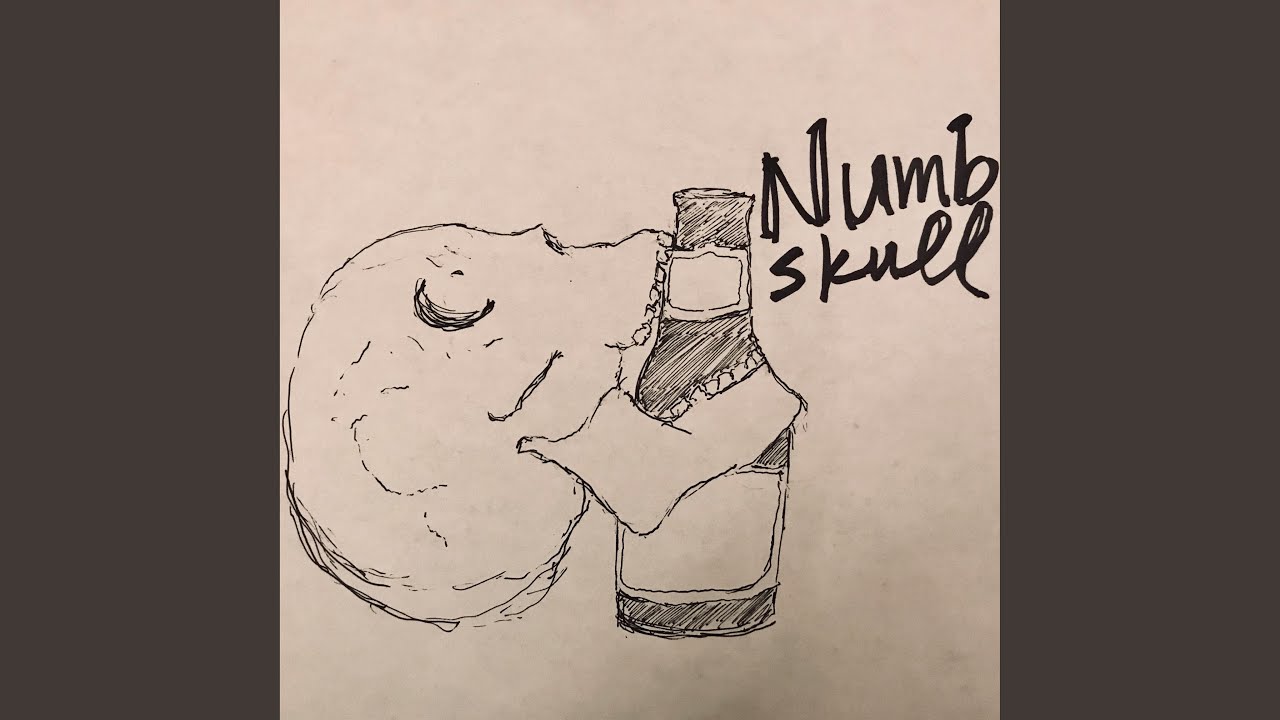 Numb
skull